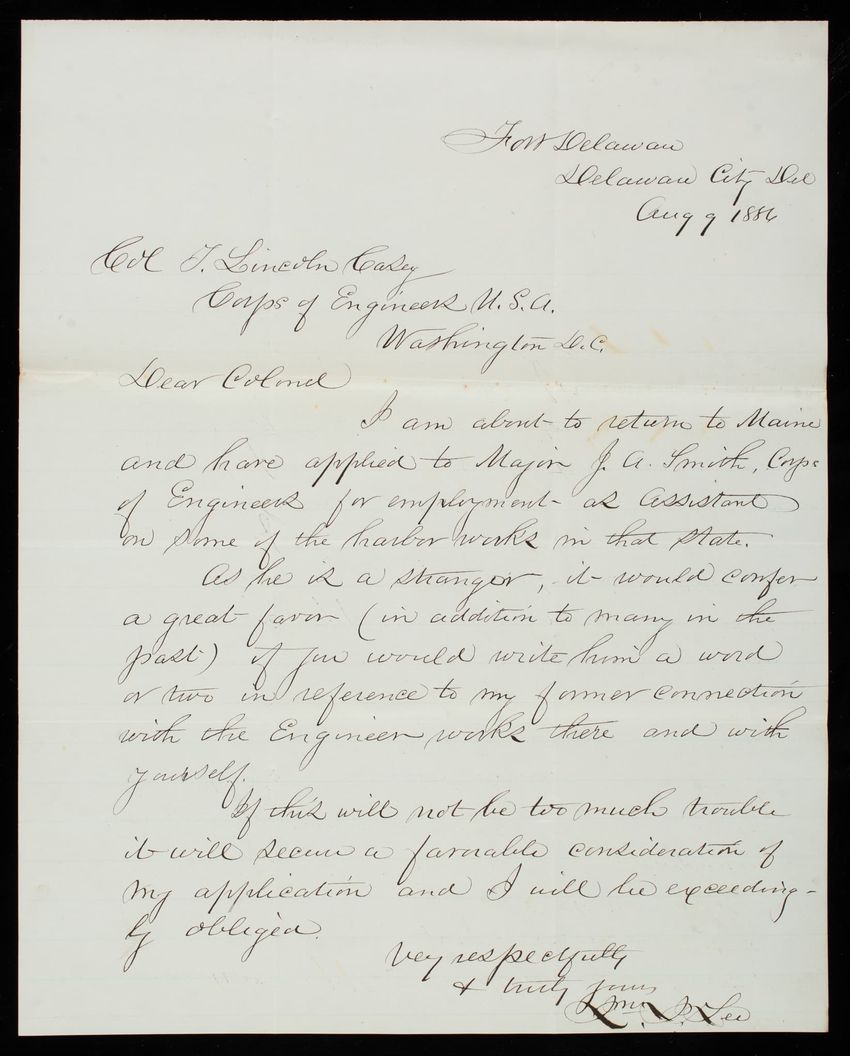 Fort Delaware
Delaware City Del
Aug 9 1886
Col T. Lincoln Casey
Corps of Engineers U.S.A.
Washington D.C.
Dear Colonel
I am about to return to Maine
and have applied to Major J. A. Smith, Corps
of Engineers for employment as Assistant
on some of the harbor works in that State.
As he is a stranger, it would confer
a great favor (in addition to many in the
past) if you would write him a word
or two in reference to my former connection
with the Engineer works there and with
yourself.
If this will not be too much trouble
it will secure a favorable consideration of
my application and I will be exceeding-
ly obliged.
Very respectfully
& truly yours
Lee